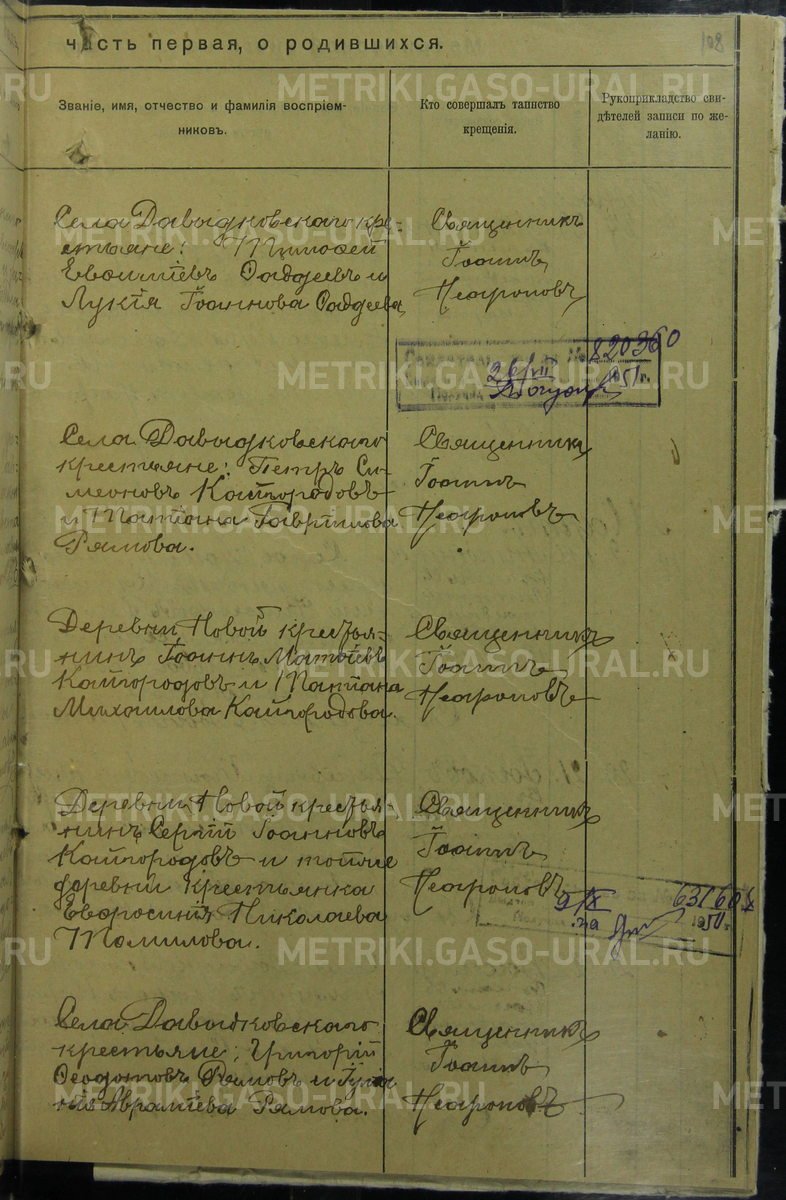 часть первая, о родившихся.
108
Званіе, имя, отчество и фамилія воспріем-
никовъ.
Кто совершалъ таинство
крещенія.
Рукоприкладство сви-
дѣтелей записи по же-
ланію.
Села Давыдковскаго кре-
стьяне: Тимофей
Евѳиміевъ Ѳаддеевъ и
Лукія Іоаннова Ѳаддеева
Священникъ
Іоаннъ
Неароновъ
№ 820360
26/VII 1951г.
Села Давыдковскаго
крестьяне: Петръ Си-
меоновъ Кайгородовъ
и Татіана Гавріилова
Рямова.
Священникъ
Іоаннъ
Неароновъ
Деревни Новой крестья-
нинъ Іоаннъ Матѳіевъ
Кайгородовъ и Татіана
Михаилова Кайгородова.
Священникъ
Іоаннъ
Неароновъ
Деревни Новой крестья-
нинъ Сергій Іоанновъ
Кайгородовъ и тойже
деревни крестьянка
Евѳросинія Николаева
Томилова.
Священникъ
Іоаннъ
Неароновъ
9/X
631608
Села Давыдковскаго
крестьяне: Григорій
Ѳеодотовъ Рямовъ и
Авраміева Рямова.
Священникъ
Іоаннъ
Неароновъ
METRIKI.GASO-URAL.RU